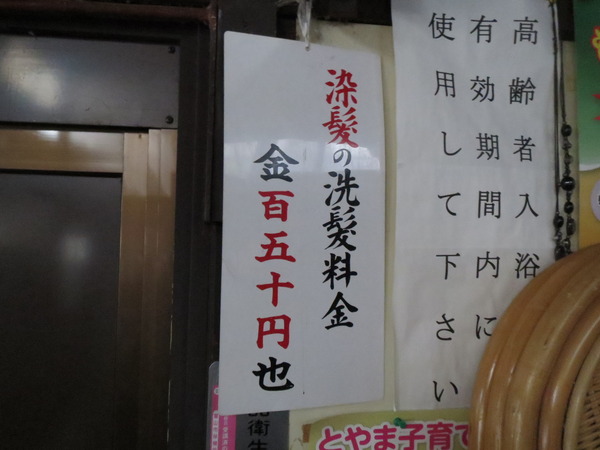 高齢者入浴
有効期間内に
使用して下さい
染髪の洗髪料金
金百五十円也
とやま子育て